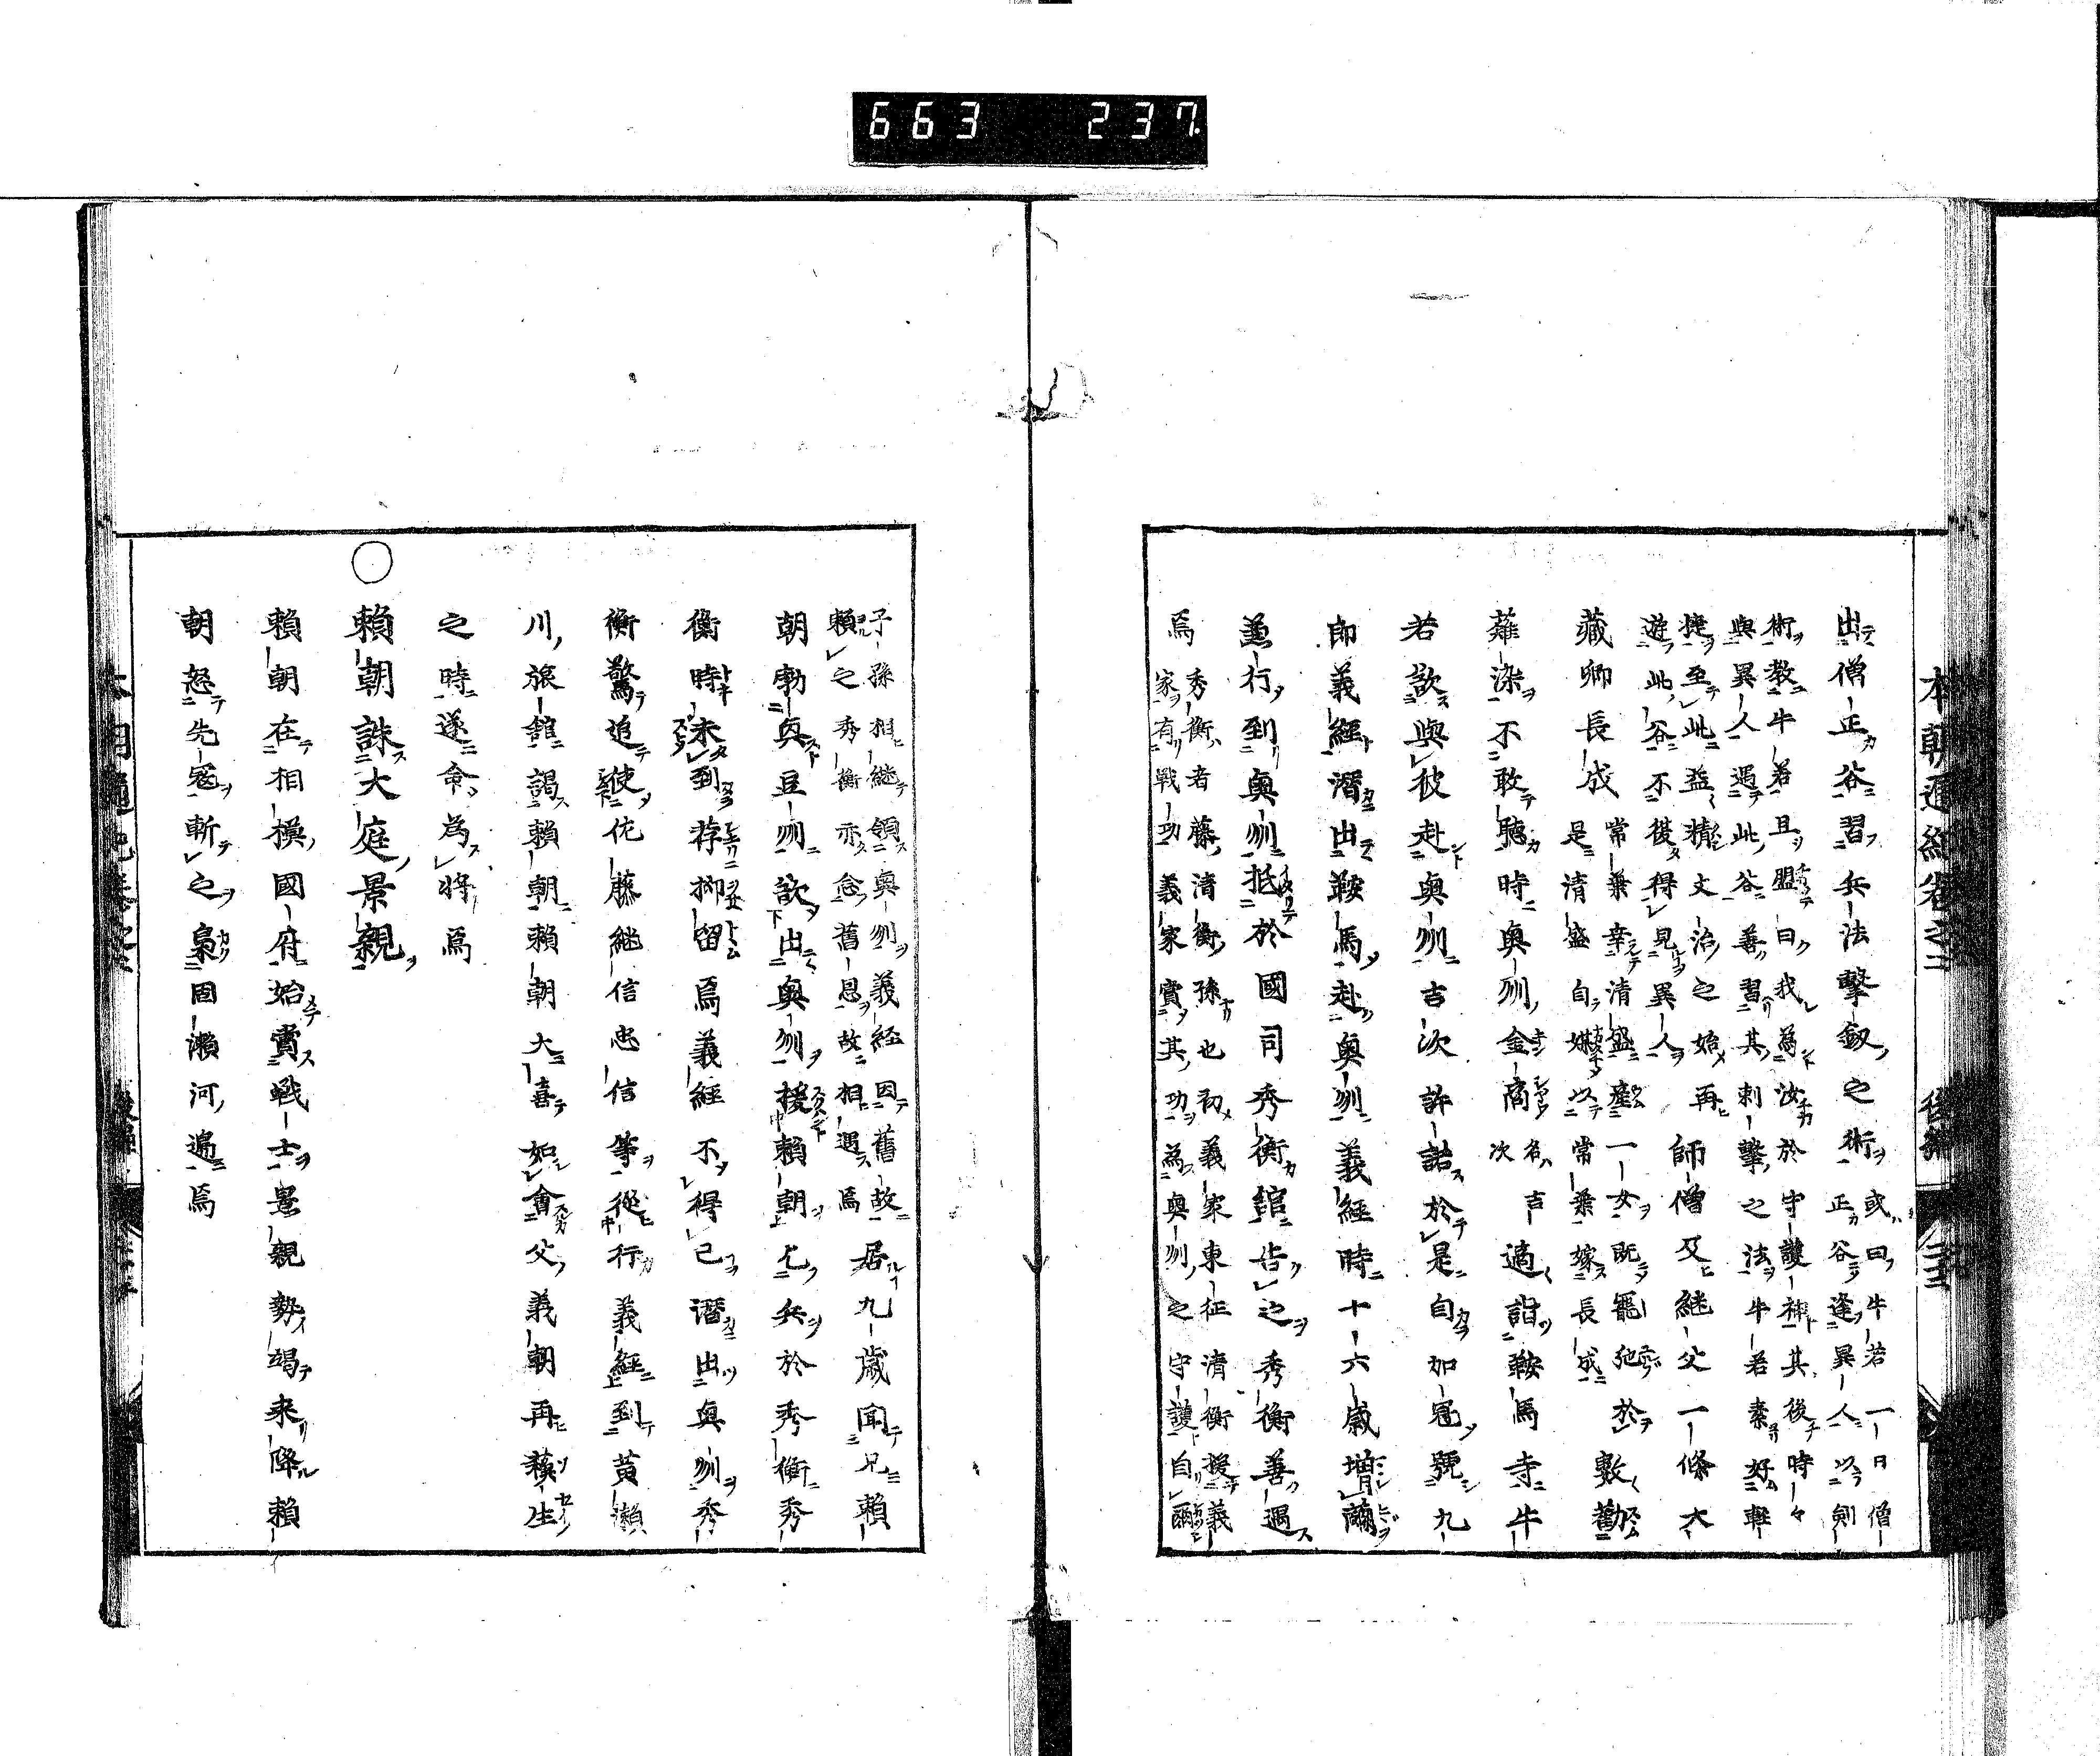 663 237
本朝通紀卷之二 後編
出僧正谷習兵法擊劔之術或曰牛若一日僧
正谷逢異人以剣
術教牛若且盟曰我為汝於守護神其後時々
與異人遇此谷善習其刺擊之法牛若素好輕
捷至此益精文治之始再
遊此谷不復得見異人師僧及継父一條大
藏卿長成常葉幸清盛產一女既寵弛於
是清盛自媒以常葉嫁長成數勸
薙染不敢聽時奥州金商名吉
次適詣鞍馬寺牛
若欲與彼赴奥州吉次許諾於是自加冠號九
郎義經潛出鞍馬赴奥州義經時十六歳增補
兼行到奥州抵於國司秀衡舘告之秀衡善遇
焉秀衡者藤清衡孫也初義家東征清衡援義
家有戰功義家賞其功為奥州之守護自爾
子孫相継領奥州義経因舊故
賴之秀衡亦念舊恩故相遇焉居九歳聞兄賴
朝勃興豆州欲出奥州援賴朝乞兵於秀衡秀
衡時未到荐抑留焉義經不得已潛出奥州秀
衡驚追使佐藤継信忠信等從行義經到黄瀨
川旅舘謁賴朝賴朝大喜如會父義朝再穌生
之時遂令為將焉
○賴朝誅大庭景親
賴朝在相模國府始賞戰士景親勢竭来降賴
朝怒先寇斬之梟固瀨河邊焉